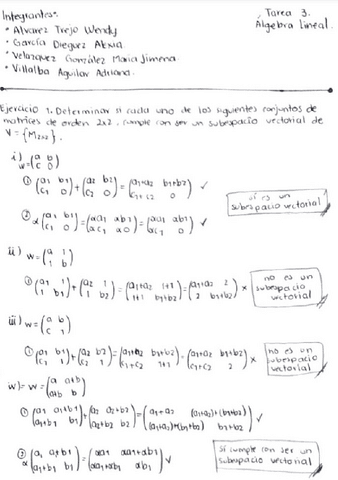 Integrantes:
• Alvarez Trejo Wendy
• García Dieguez Alexia
• Velazquez González Maria Jimena.
• Villalba Aguilar Adriana.
Tarea 3.
Álgebra Lineal.
Ejercicio 1. Determinar si cada uno de los siguientes conjuntos de
matrices de orden 2x2, cumple con ser un subespacio vectorial de
V = {M2x2}.
i) w = (a b; c 0)
① (a1 b1; c1 0) + (a2 b2; c2 0) = (a1+a2 b1+b2; c1+c2 0) ✓
② α (a1 b1; c1 0) = (αa1 αb1; αc1 α0) = (αa1 αb1; αc1 0) ✓
sí es un
subespacio vectorial
ii) w = (a 1; 1 b)
① (a1 1; 1 b1) + (a2 1; 1 b2) = (a1+a2 1+1; 1+1 b1+b2) = (a1+a2 2; 2 b1+b2) ×
no es un
subespacio
vectorial
iii) w = (a b; c 1)
① (a1 b1; c1 1) + (a2 b2; c2 1) = (a1+a2 b1+b2; c1+c2 1+1) = (a1+a2 b1+b2; c1+c2 2) ×
no es un
subespacio
vectorial
iv) = w = (a a+b; a+b b)
① (a1 a1+b1; a1+b1 b1) + (a2 a2+b2; a2+b2 b2) = (a1+a2 (a1+a2)+(b1+b2); (a1+a2)+(b1+b2) b1+b2) ✓
② α (a1 a1+b1; a1+b1 b1) = (αa1 αa1+αb1; αa1+αb1 αb1) ✓
Sí cumple con ser un
subespacio vectorial